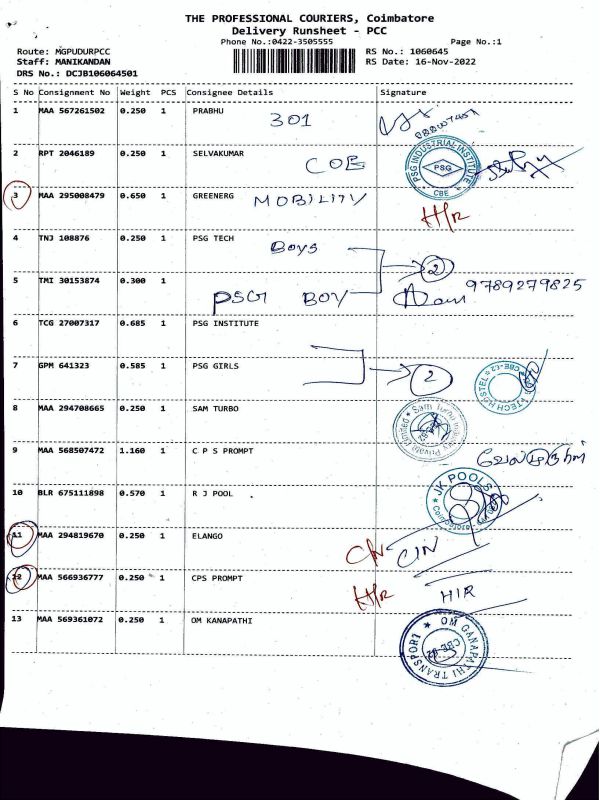 THE PROFESSIONAL COURIERS, Coimbatore
Delivery Runsheet - PCC
Phone No.:0422-3505555 Page No.:1
Route: MGPUDURPCC RS No.: 1060645
Staff: MANIKANDAN RS Date: 16-Nov-2022
DRS No.: DCJB106064501
S No Consignment No Weight PCS Consignee Details Signature
1 MAA 567261502 0.250 1 PRABHU 301
2 RPT 2046189 0.250 1 SELVAKUMAR COE PSG INDUSTRIAL INSTITUTE PSG CBE
3 MAA 295008479 0.650 1 GREENERG MOBILITY H/R
4 TNJ 108876 0.250 1 PSG TECH Boys 2
5 TMI 30153874 0.300 1 PSG BOY 9789279825
6 TCG 27007317 0.685 1 PSG INSTITUTE
7 GPM 641323 0.585 1 PSG GIRLS 2 TECH HOSTEL
8 MAA 294708665 0.250 1 SAM TURBO Sam Turbo Industry Private Limited
9 MAA 568507472 1.160 1 C P S PROMPT
10 BLR 675111898 0.570 1 R J POOL JK POOLS
11 MAA 294819670 0.250 1 ELANGO C/N CIN
12 MAA 566936777 0.250 1 CPS PROMPT H/R HIR
13 MAA 569361072 0.250 1 OM KANAPATHI OM GANAPATHI TRANSPORT